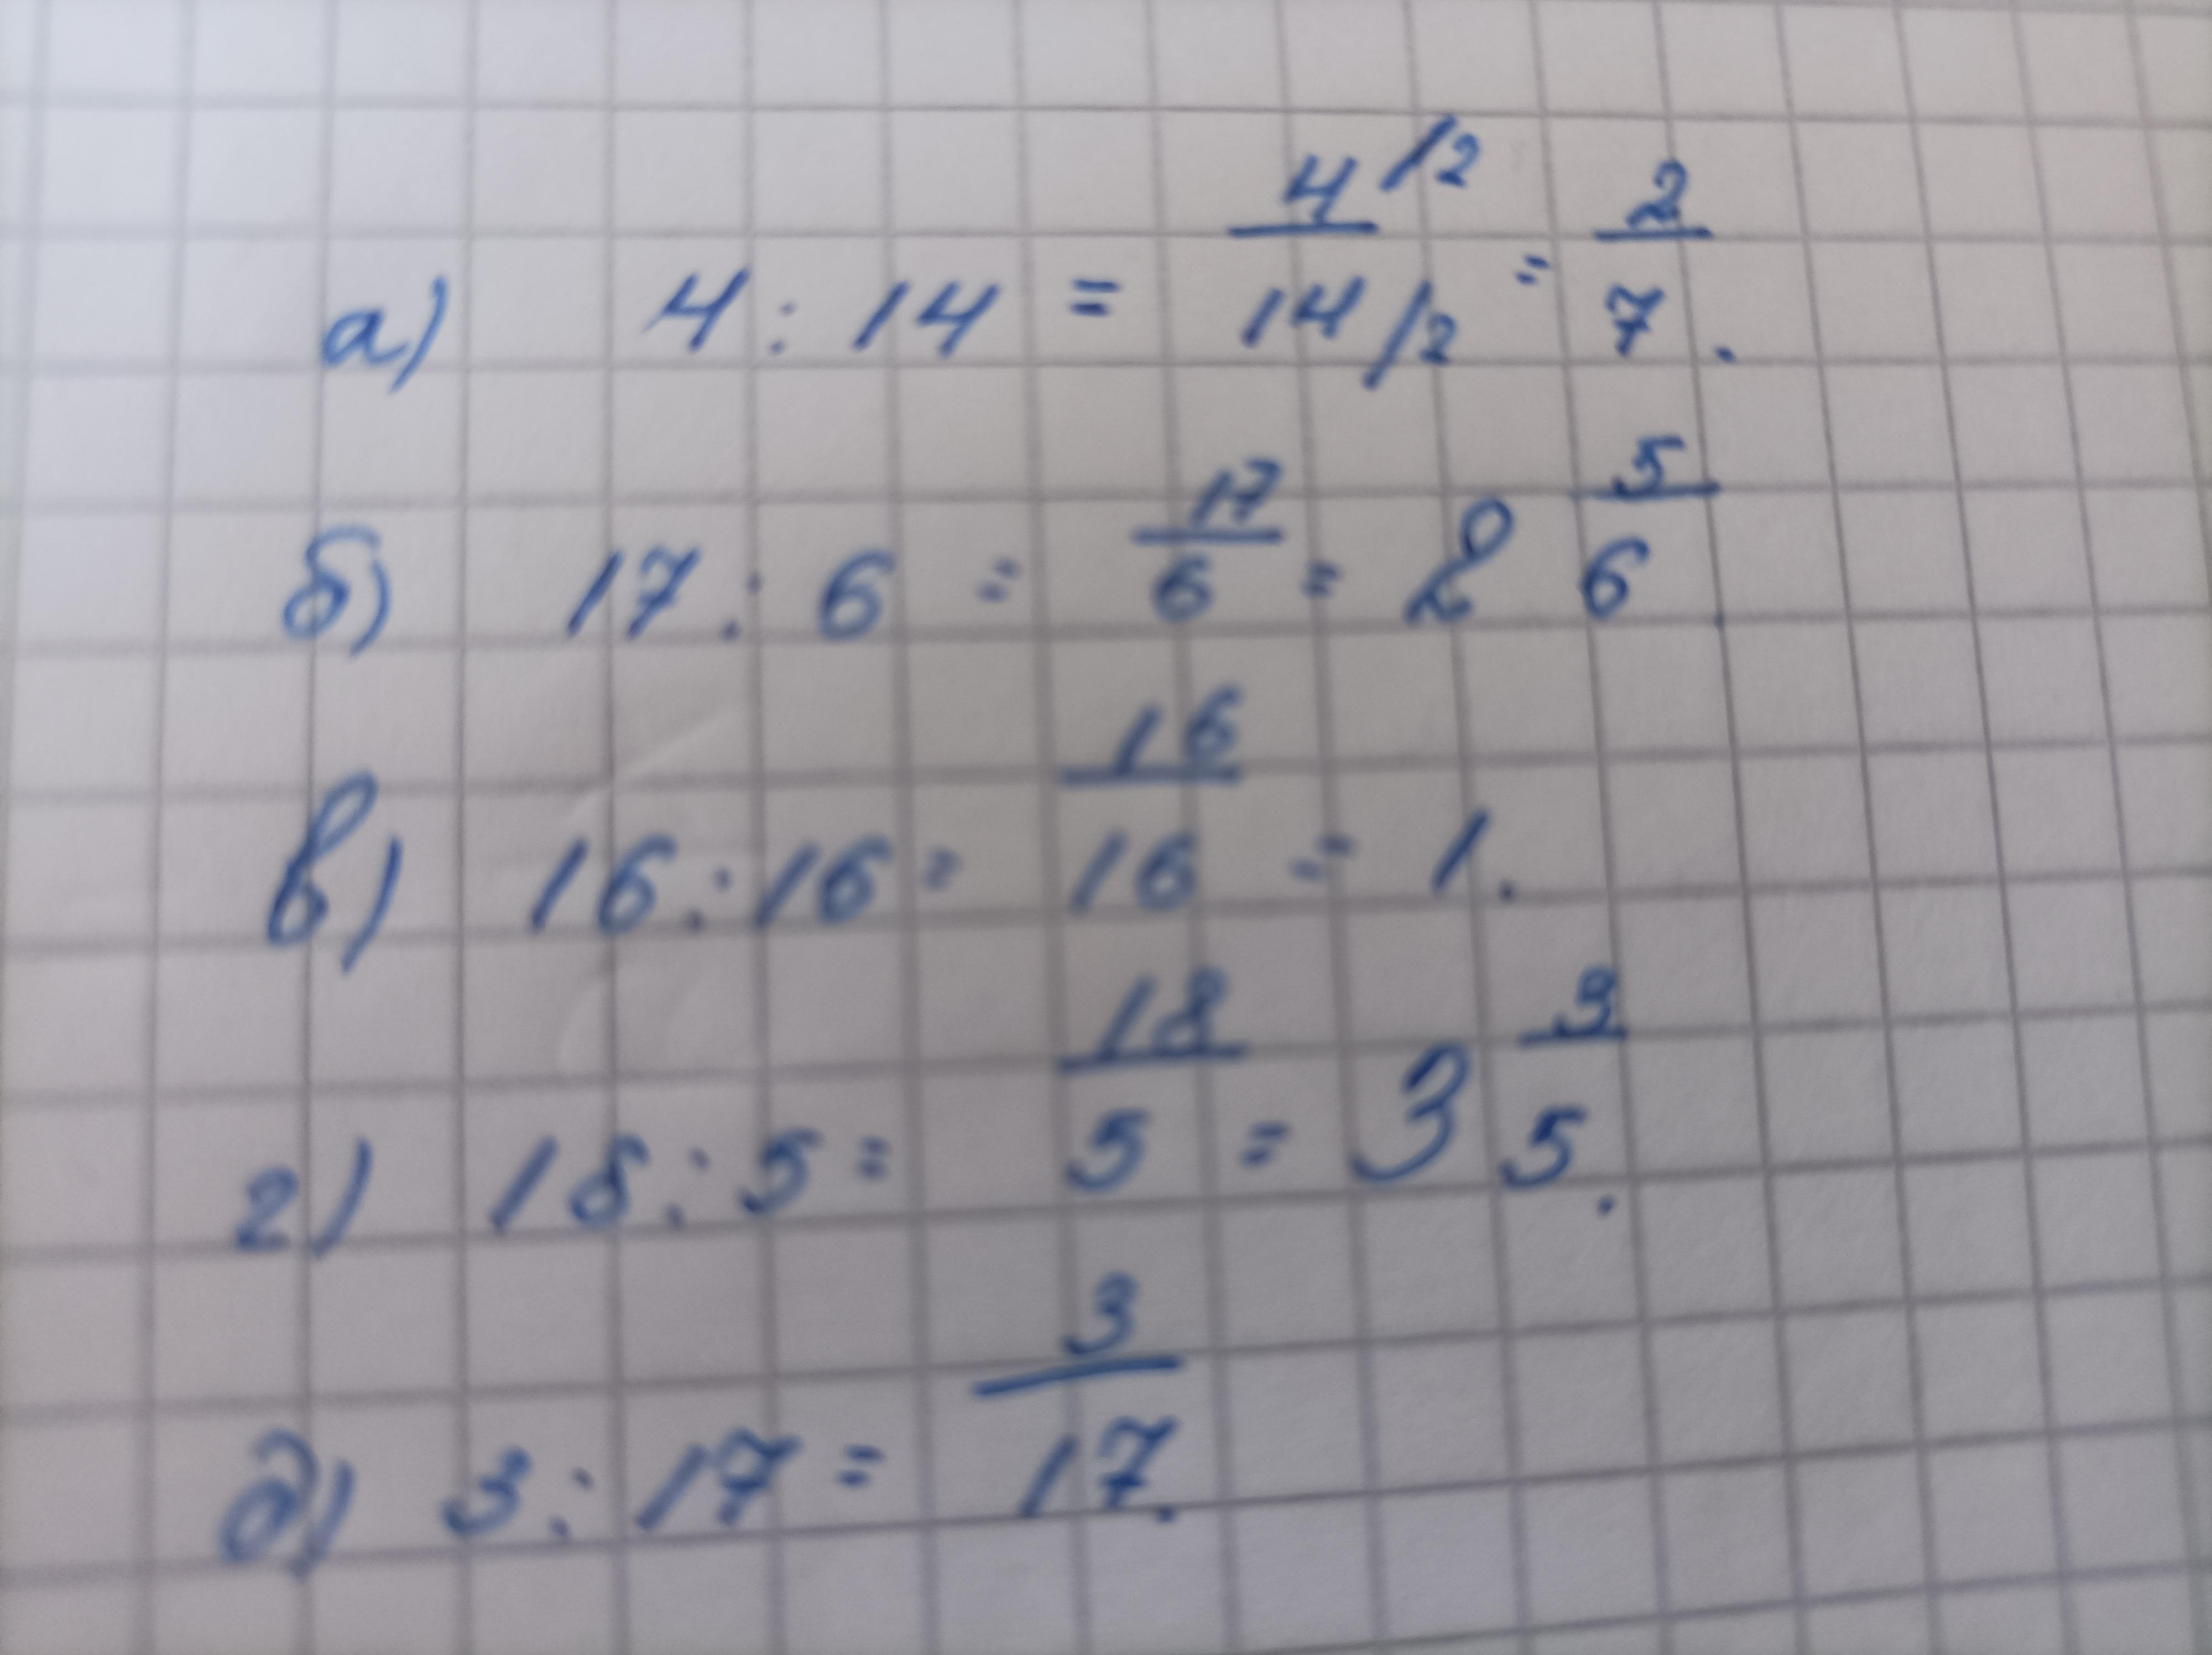 а) 4 : 14 = 4/2 / 14/2 = 2/7.
б) 17 : 6 = 17/6 = 2 5/6.
в) 16 : 16 = 16/16 = 1.
г) 18 : 5 = 18/5 = 3 3/5.
д) 3 : 17 = 3/17.